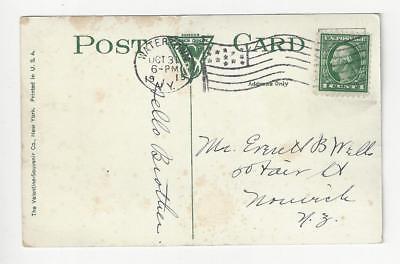 POST CARD
WATER
OCT 31
6-PM
1915
N.Y.
Address Only
1 CENT 1
Hello Brother.
Mr. Everett B Wells
50 Fair St
Norwich
N.Y.
The Valentine-Souvenir Co., New York. Printed in U.S.A.